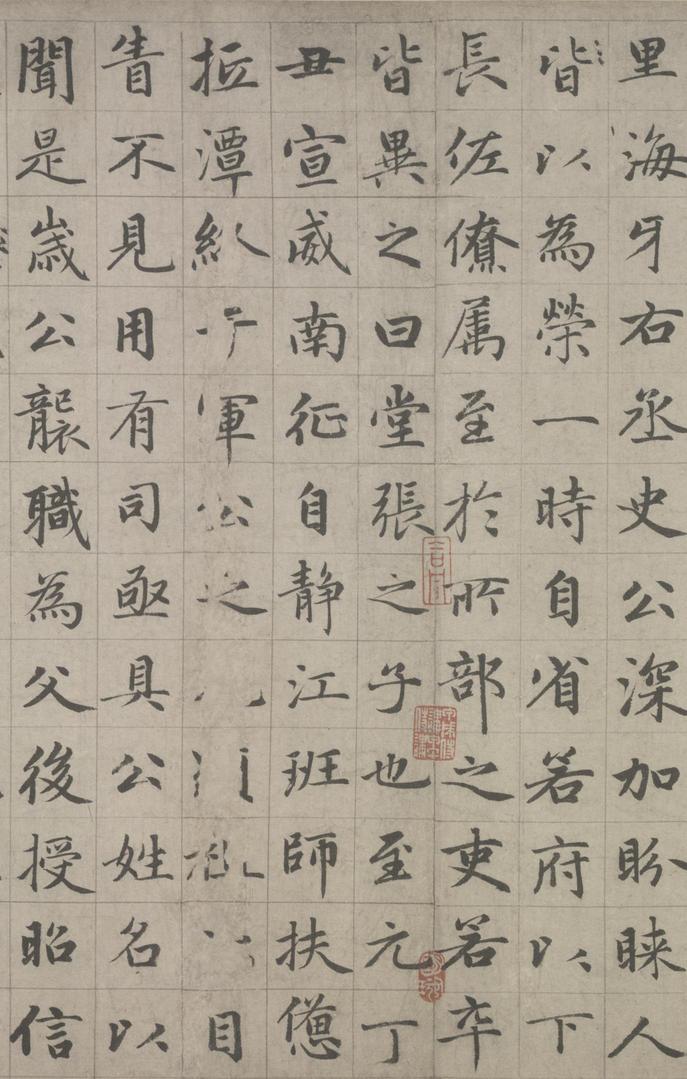 里海牙右丞史公深加盼睞人
皆以為榮一時自省若府以下
長佐僚属至於所部之吏若卒
皆異之曰堂張之子也至元丁
丑宣威南征自静江班師扶憊
抵潭軍公之以目
眚不見用有司亟具公姓名以
聞是歳公襲職為父後授昭信